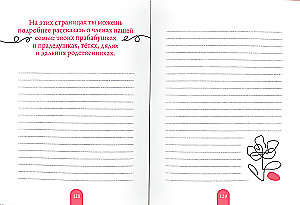 На этих страницах ты можешь
подробнее рассказать о членах нашей
семьи: твоих прабабушках
и прадедушках, тётях, дядях
и дальних родственниках.
128
129